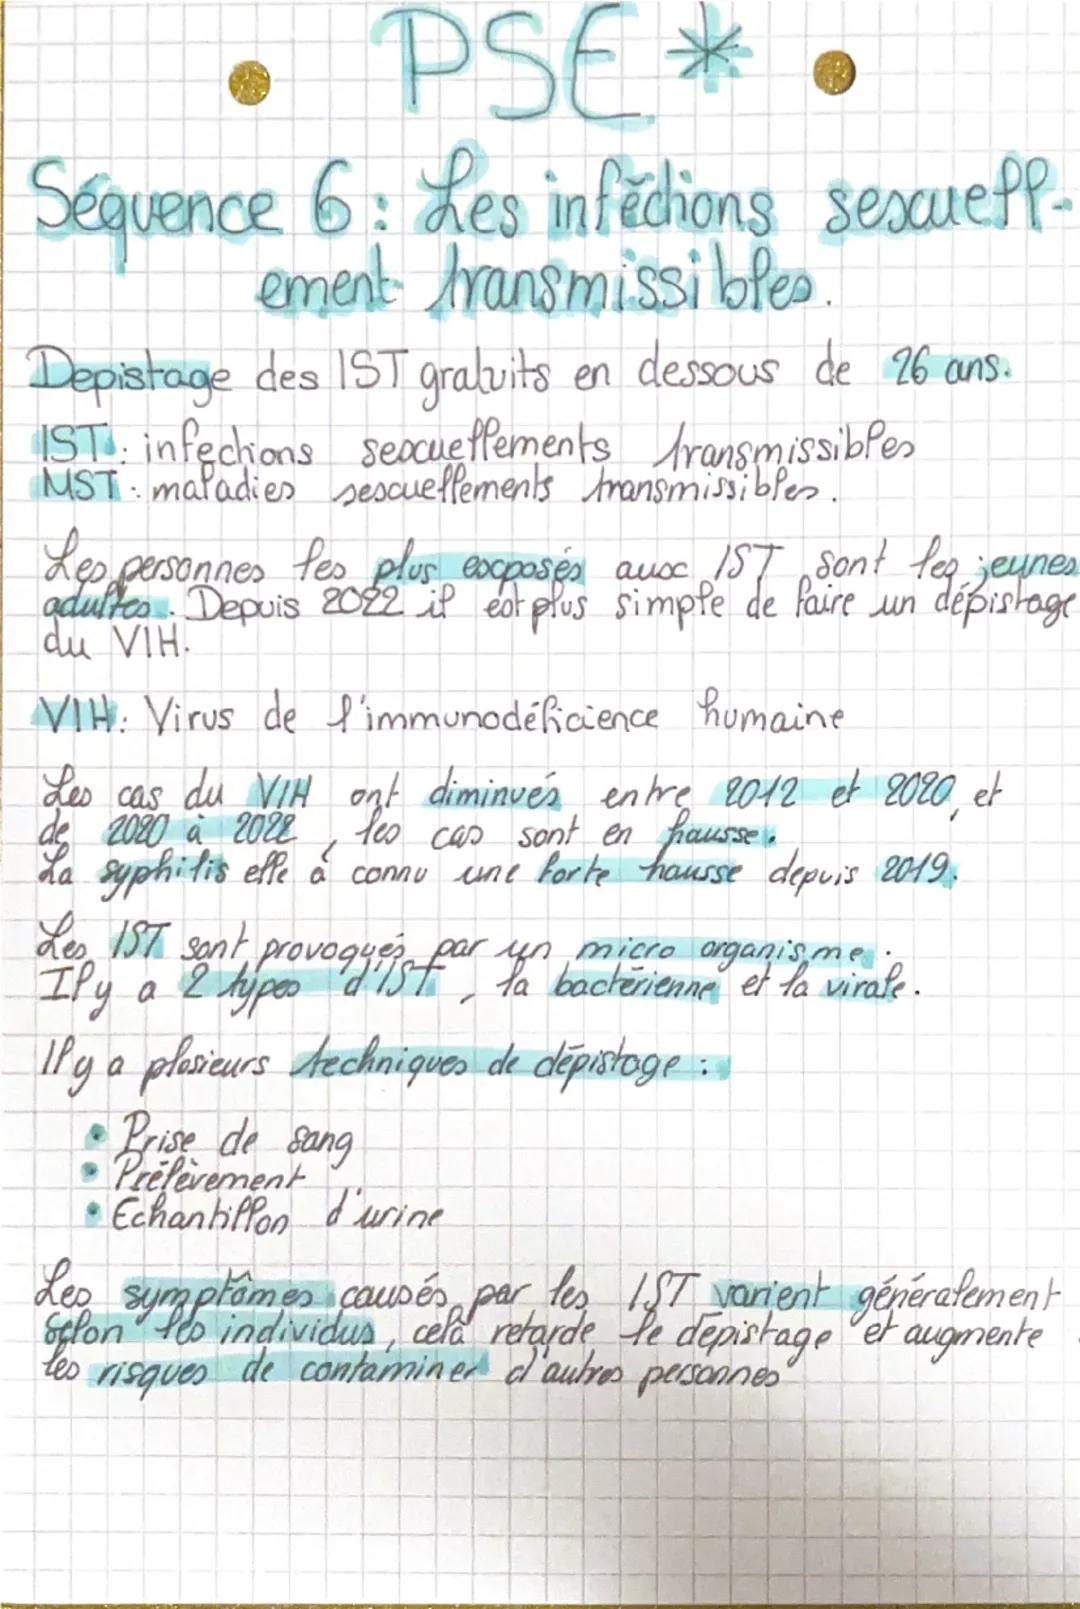 PSE *
Séquence 6 : Les infections sexuell-
ement transmissibles.
Depistage des IST gratuits en dessous de 26 ans.
IST : infections sexuellements transmissibles
MST : maladies sexuellements transmissibles.
Les personnes les plus exposés aux IST sont les jeunes
adultes. Depuis 2022 il est plus simple de faire un dépistage
du VIH.
VIH : Virus de l'immunodéficience humaine
Les cas du VIH ont diminués entre 2012 et 2020, et
de 2020 à 2022, les cas sont en hausse.
La syphilis elle à connu une forte hausse depuis 2019.
Les IST sont provoqués par un micro organisme.
Il y a 2 types d'IST, la bactérienne et la virale.
Il y a plosieurs techniques de dépistage :
• Prise de sang
• Prélèvement
• Echantillon d'urine
Les symptômes causés par les IST varient généralement
selon les individus, celà retarde le dépistage et augmente
les risques de contaminer d'autres personnes